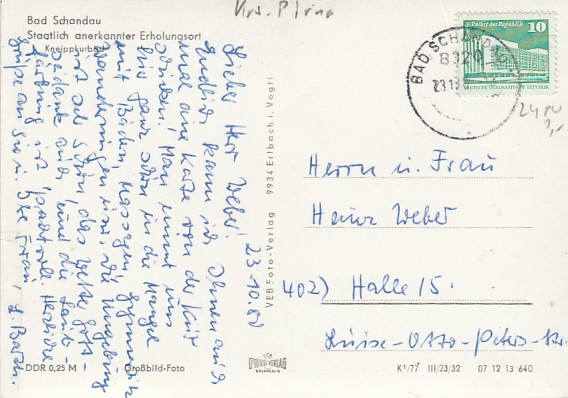 Krs. Pirna
Bad Schandau
Staatlich anerkannter Erholungsort
Kneippkurbad
Palast der Republik
10
DEUTSCHE DEMOKRATISCHE REPUBLIK
BAD SCHANDAU
8320
23.10.80
Lieber Herr Weber!
Endlich kann ich Ihnen auch
mal eine Karte von der Kur
schicken. Man nimmt uns
hier ganz schön in die Mangel
mit Bädern, Massagen, Gymnastik
Wanderungen usw. Die Umgebung
ist sehr schön, das Wetter Gott-
seidank auch, und die Laub-
färbung ist prachtvoll. Herzliche
Grüße an Sie u. Ihre Frau,
VEB Foto-Verlag 9934 Erlbach i. Vogtl
Herrn u. Frau
Heinz Weber
402) Halle 15.
Luise-Otto-Peters-Str.
DDR 0,25 M
Großbild-Foto
K1/77 III/23/32 07 12 13 640